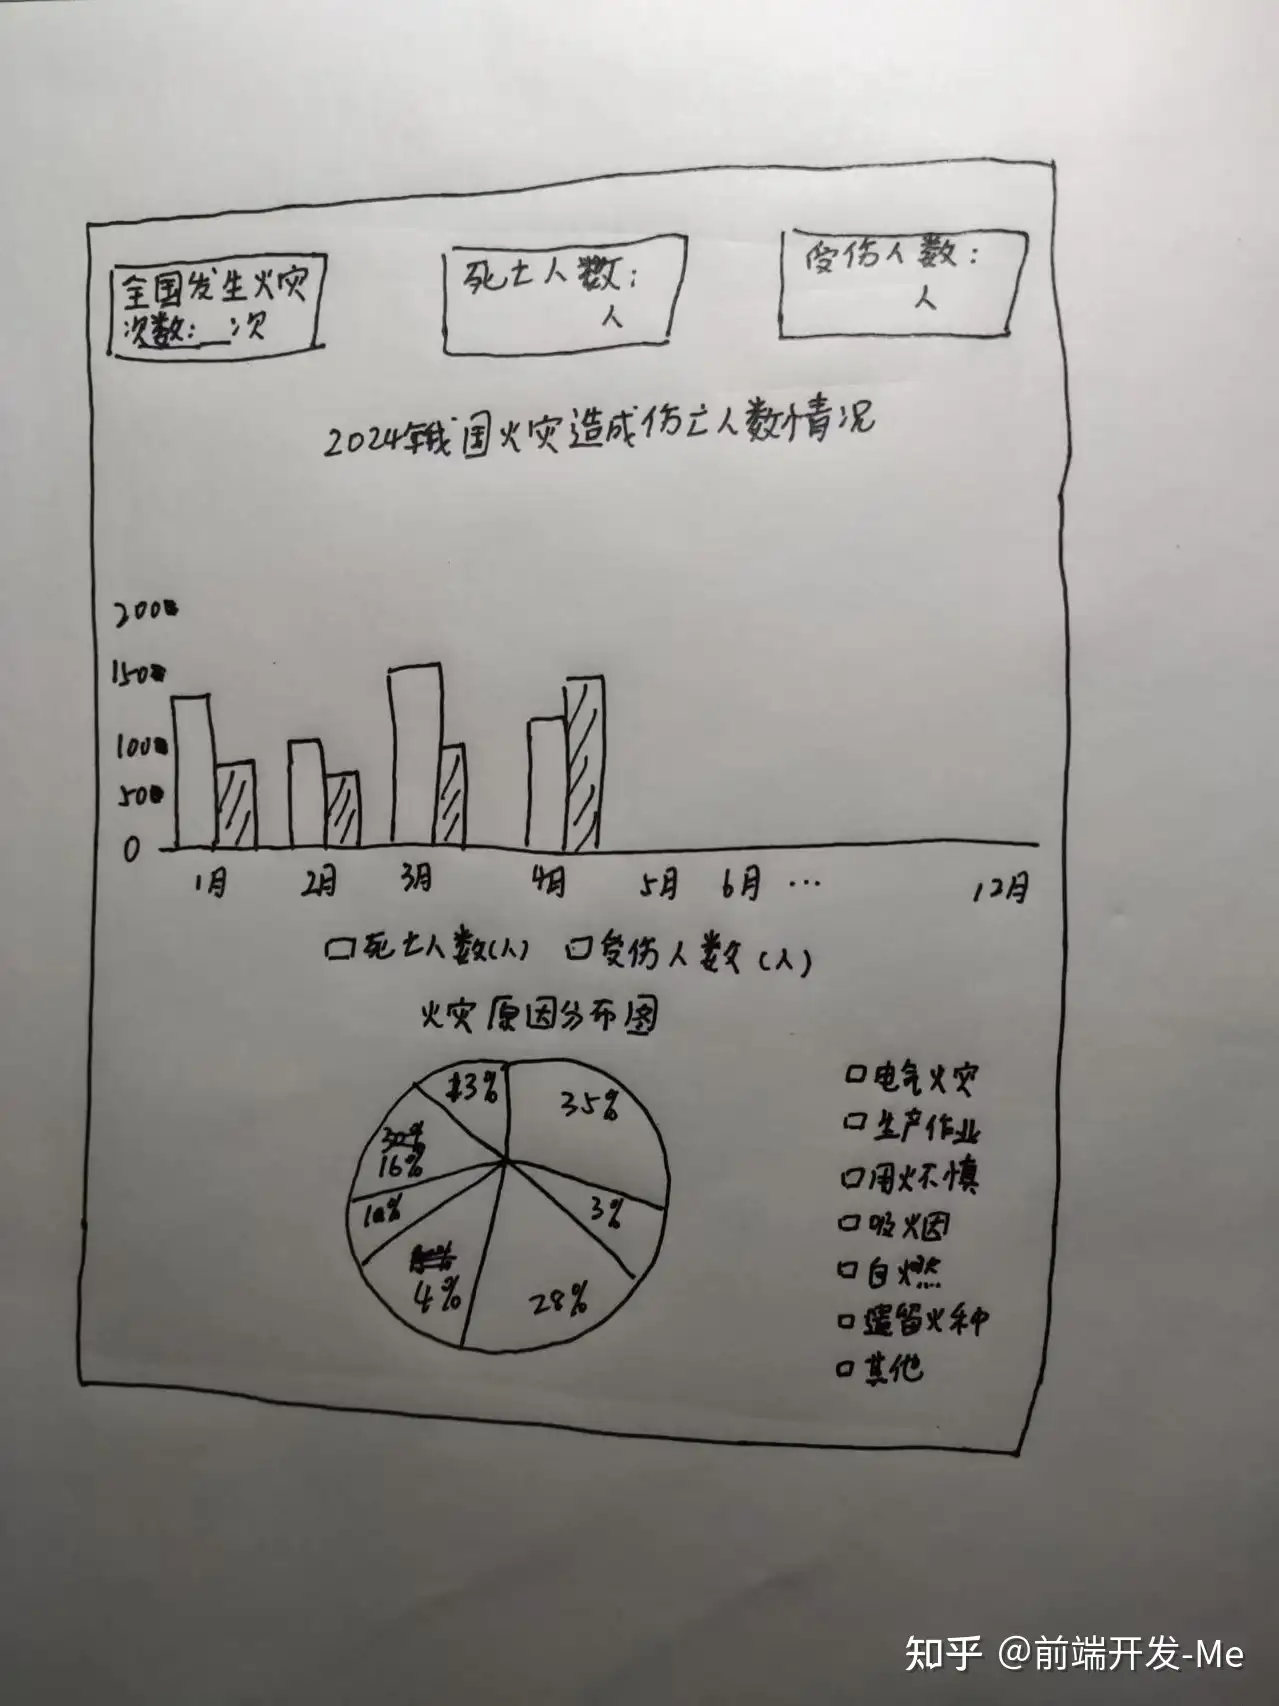 全国发生火灾
次数:__次
死亡人数:
人
受伤人数:
人
2024年我国火灾造成伤亡人数情况
200
150
100
50
0
1月 2月 3月 4月 5月 6月 ... 12月
□死亡人数(人) □受伤人数(人)
火灾原因分布图
13%
35%
30%
16%
10%
3%
4%
28%
□电气火灾
□生产作业
□用火不慎
□吸火因
□自燃
□遗留火种
□其他
知乎 @前端开发-Me